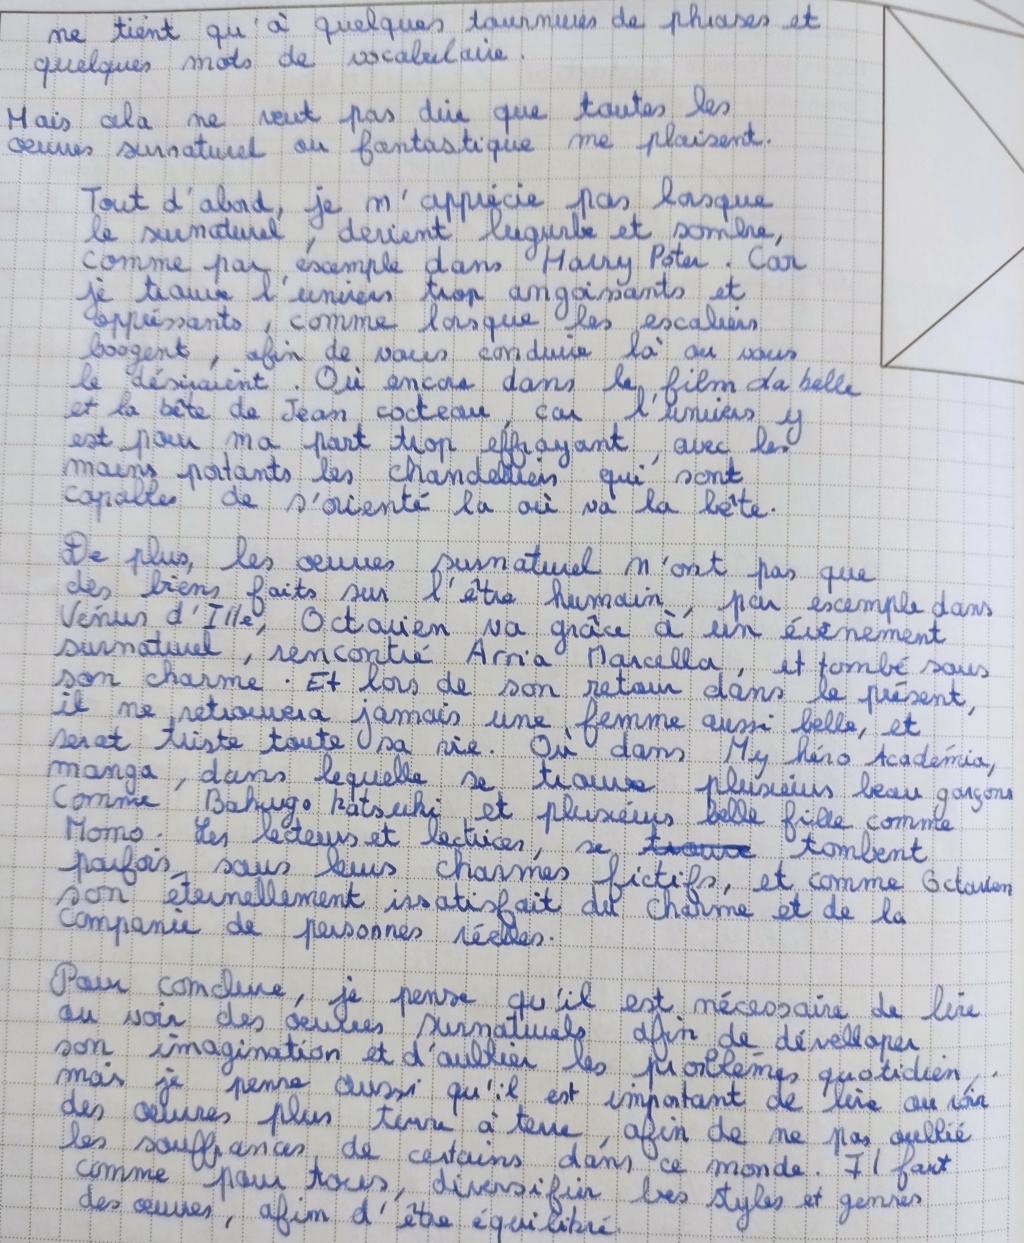 ne tient qu'à quelques tournures de phrases et
quelques mots de vocabulaire.
Mais cela ne veut pas dire que toutes les
œuvres surnaturel ou fantastique me plaisent.
Tout d'abord, je n'apprécie pas lorsque
le surnaturel, devient lugurbe et sombre,
comme par exemple dans Harry Poter. Car
je trouve l'univers trop angoissants et
oppréssants, comme lorsque les escaliers
boogent, afin de vous conduire là ou vous
le désiraient. Où encore dans le film La belle
et la bête de Jean cocteau, car l'univers y
est pour ma part trop effrayant, avec les
mains portants les chandeliers qui sont
capables de s'orienté la où va la bête.
De plus, les œuvres surnaturel n'ont pas que
des biens faits sur l'être humain, par exemple dans
Vénus d'Ille, Octavien va grâce à un événement
surnaturel, rencontré Arria Marcella, et tombé sous
son charme. Et lors de son retour dans le présent,
il ne retrouvera jamais une femme aussi belle, et
serat triste toute sa vie. Où dans My héro Académia,
manga, dans lequelle se trouve pluxiéurs beau garçons
comme Bakugo Katsuki et pluxiéurs belle fille comme
Momo. Les lecteurs et lectrices, se trouve tombent
parfois sous leurs charmes fictifs, et comme Octavien
son éternellement insatisfait du charme et de la
companie de personnes réelles.
Pour conclure, je pense qu'il est nécessaire de lire
ou voir des œuvres surnaturels afin de dévelloper
son imagination et d'oublier les problèmes quotidien,
mais je pense aussi qu'il est important de lire ou voir
des œuvres plus terre à terre, afin de ne pas oublié
les souffrances de certains dans ce monde. Il faut
comme pour tous, diversifier les styles et genres
des œuvres, afin d'être équilibré.